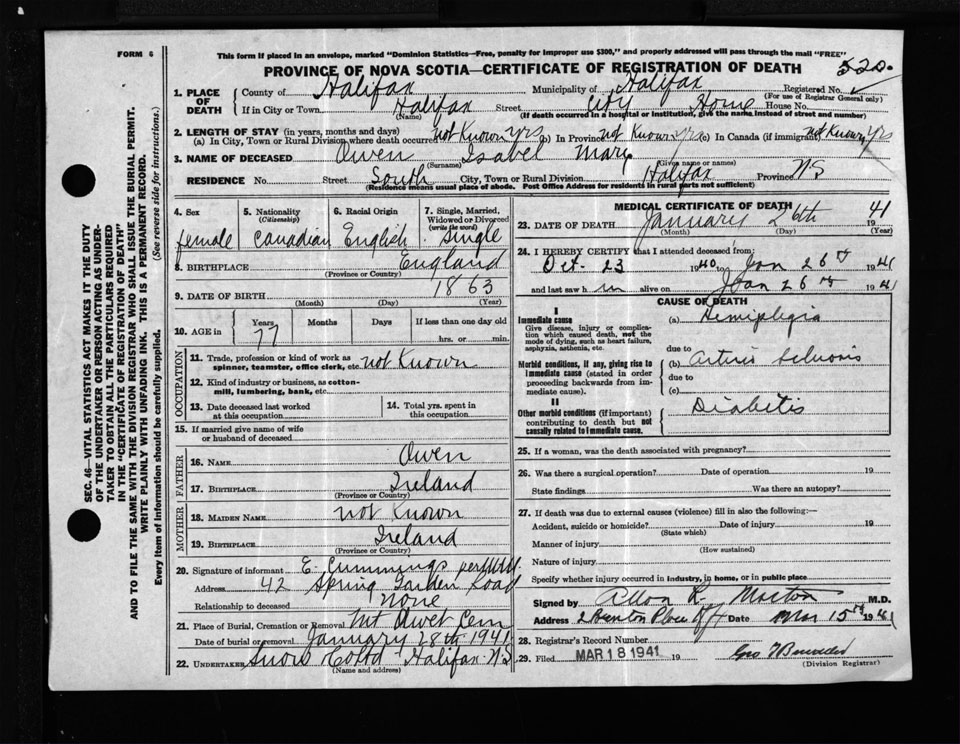 FORM 6
This form if placed in an envelope, marked "Dominion Statistics—Free, penalty for improper use $300," and properly addressed will pass through the mail "FREE"
PROVINCE OF NOVA SCOTIA—CERTIFICATE OF REGISTRATION OF DEATH
520.
1. PLACE OF DEATH
County of Halifax Municipality of Halifax Registered No.
(For use of Registrar General only)
If in City or Town Halifax Street City Home House No.
(Name) (If death occurred in a hospital or institution, give the name instead of street and number)
2. LENGTH OF STAY (in years, months and days)
(a) In City, Town or Rural Division where death occurred not Known yrs (b) In Province not Known yrs (c) In Canada (if immigrant) not Known yrs
3. NAME OF DECEASED Owen Isabel Mary
(Surname) (Given name or names)
RESIDENCE No. Street South City, Town or Rural Division Halifax Province NS
(Residence means usual place of abode. Post Office Address for residents in rural parts not sufficient)
4. Sex female
5. Nationality (Citizenship) Canadian
6. Racial Origin English
7. Single, Married, Widowed or Divorced (write the word) Single
8. BIRTHPLACE England
(Province or Country)
9. DATE OF BIRTH 1863
(Month) (Day) (Year)
10. AGE in Years Months Days If less than one day old
77 hrs. or min.
OCCUPATION
11. Trade, profession or kind of work as spinner, teamster, office clerk, etc. not Known
12. Kind of industry or business, as cotton-mill, lumbering, bank, etc.
13. Date deceased last worked at this occupation
14. Total yrs. spent in this occupation
15. If married give name of wife or husband of deceased
FATHER
16. NAME Owen
17. BIRTHPLACE Ireland
(Province or Country)
MOTHER
18. MAIDEN NAME not Known
19. BIRTHPLACE Ireland
(Province or Country)
20. Signature of informant E. Cummings per
Address 42 Spring Garden Road
Relationship to deceased none
21. Place of Burial, Cremation or Removal Mt Olivet Cem
Date of burial or removal January 28th 1941
22. UNDERTAKER Snow Co Ltd Halifax NS
(Name and address)
MEDICAL CERTIFICATE OF DEATH
23. DATE OF DEATH January 26th 41
(Month) (Day) (Year)
24. I HEREBY CERTIFY that I attended deceased from:
Oct. 23 1940 to Jan 26th 1941
and last saw h alive on Jan 26th 1941
CAUSE OF DEATH
I
Immediate cause
Give disease, injury or complication which caused death, not the mode of dying, such as heart failure, asphyxia, asthenia, etc.
(a) Hemiplegia
due to
Morbid conditions, if any, giving rise to immediate cause (stated in order proceeding backwards from immediate cause).
(b)
due to
(c)
II
Other morbid conditions (if important) contributing to death but not causally related to immediate cause.
Diabetis
25. If a woman, was the death associated with pregnancy?
26. Was there a surgical operation? Date of operation 19
State findings Was there an autopsy?
27. If death was due to external causes (violence) fill in also the following:—
Accident, suicide or homicide? Date of injury 19
(State which)
Manner of injury
(How sustained)
Nature of injury
Specify whether injury occurred in industry, in home, or in public place
Signed by Allan R. Morton M.D.
Address Date Mar 15th 1941
28. Registrar's Record Number
29. Filed MAR 18 1941 19
(Division Registrar)
SEC. 46—VITAL STATISTICS ACT MAKES IT THE DUTY
OF THE UNDERTAKER OR PERSON ACTING AS UNDERTAKER
TO OBTAIN ALL THE PARTICULARS REQUIRED
IN THE "CERTIFICATE OF REGISTRATION OF DEATH"
AND TO FILE THE SAME WITH THE DIVISION REGISTRAR WHO SHALL ISSUE THE BURIAL PERMIT.
WRITE PLAINLY WITH UNFADING INK. THIS IS A PERMANENT RECORD.
Every item of information should be carefully supplied. (See reverse side for instructions.)